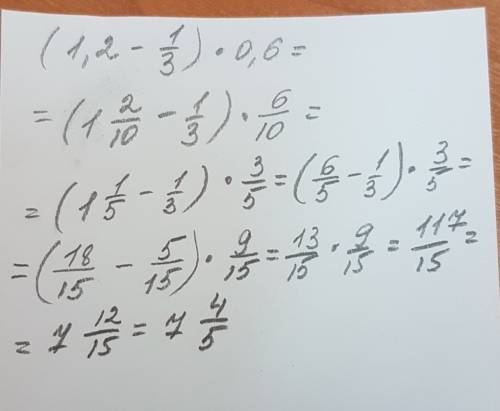 (1,2 - 1/3) • 0,6 =
= (1 2/10 - 1/3) • 6/10 =
= (1 1/5 - 1/3) • 3/5 = (6/5 - 1/3) • 3/5 =
= (18/15 - 5/15) • 9/15 = 13/15 • 9/15 = 117/15 =
= 7 12/15 = 7 4/5